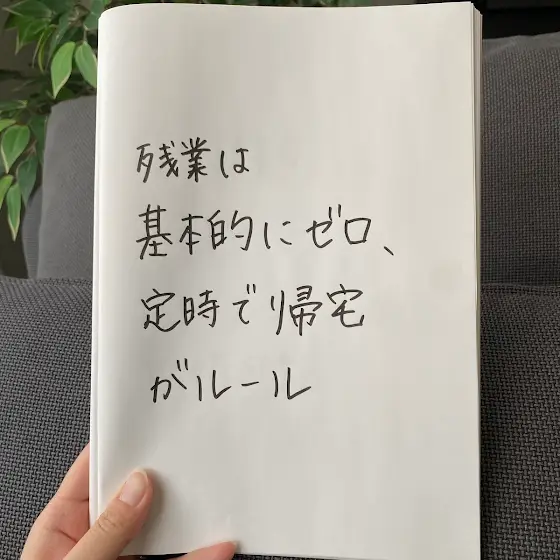 残業は
基本的にゼロ、
定時で帰宅
がルール